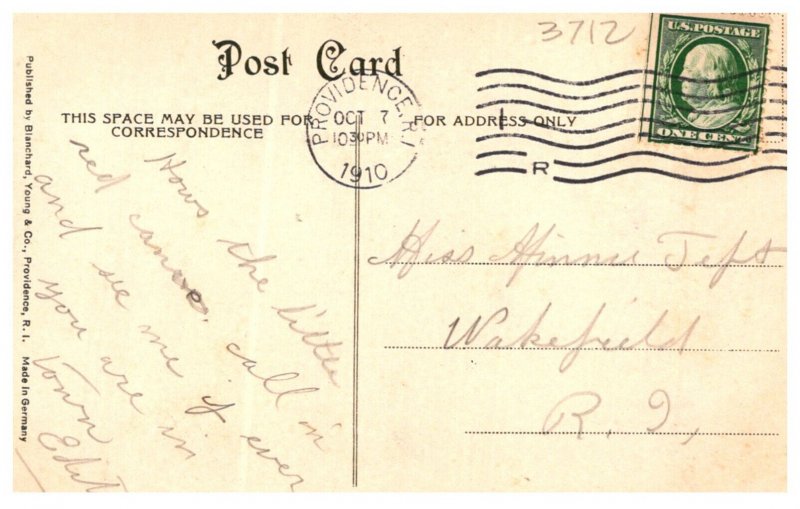 3712
U.S. POSTAGE
ONE CENT
Post Card
PROVIDENCE, R.I.
OCT 7
10 30 PM
1910
R
THIS SPACE MAY BE USED FOR
CORRESPONDENCE
FOR ADDRESS ONLY
Published by Blanchard, Young & Co., Providence, R. I. Made in Germany
Hows the little
red canoe. call in
and see me if ever
you are in
town
Miss Minnie Teft
Wakefield
R. I,